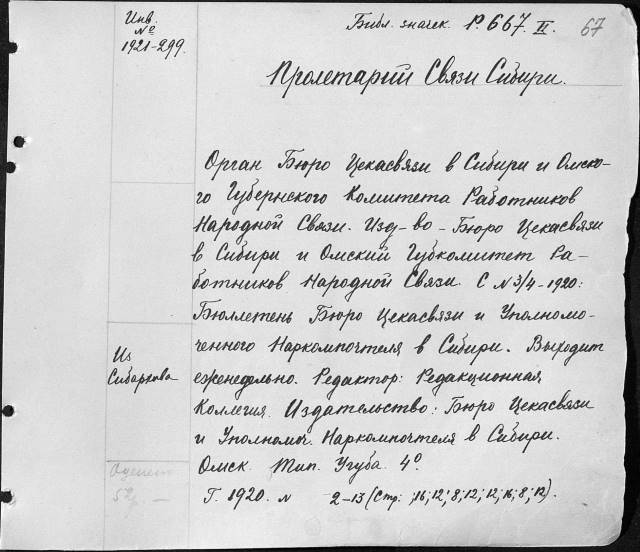 Инв.
№
1921-299.
Библ. значек. Р. 667. II. 67
Пролетарий Связи Сибири.
Орган Бюро Цекасвязи в Сибири и Омско-
го Губернского Комитета Работников
Народной Связи. Изд-во - Бюро Цекасвязи
в Сибири и Омский Губкомитет Ра-
ботников Народной Связи. С N 3/4 - 1920:
Бюллетень Бюро Цекасвязи и Уполномо-
ченного Наркомпочтеля в Сибири. Выходит
еженедельно. Редактор: Редакционная
Коллегия. Издательство: Бюро Цекасвязи
и Уполномоч. Наркомпочтеля в Сибири.
Омск. Тип. Угуба. 4°.
Г. 1920. N 2-13 (Стр: ;16; 12; 8; 12; 12; 16; 8; 12).
Из
Сибаркова
Оценен